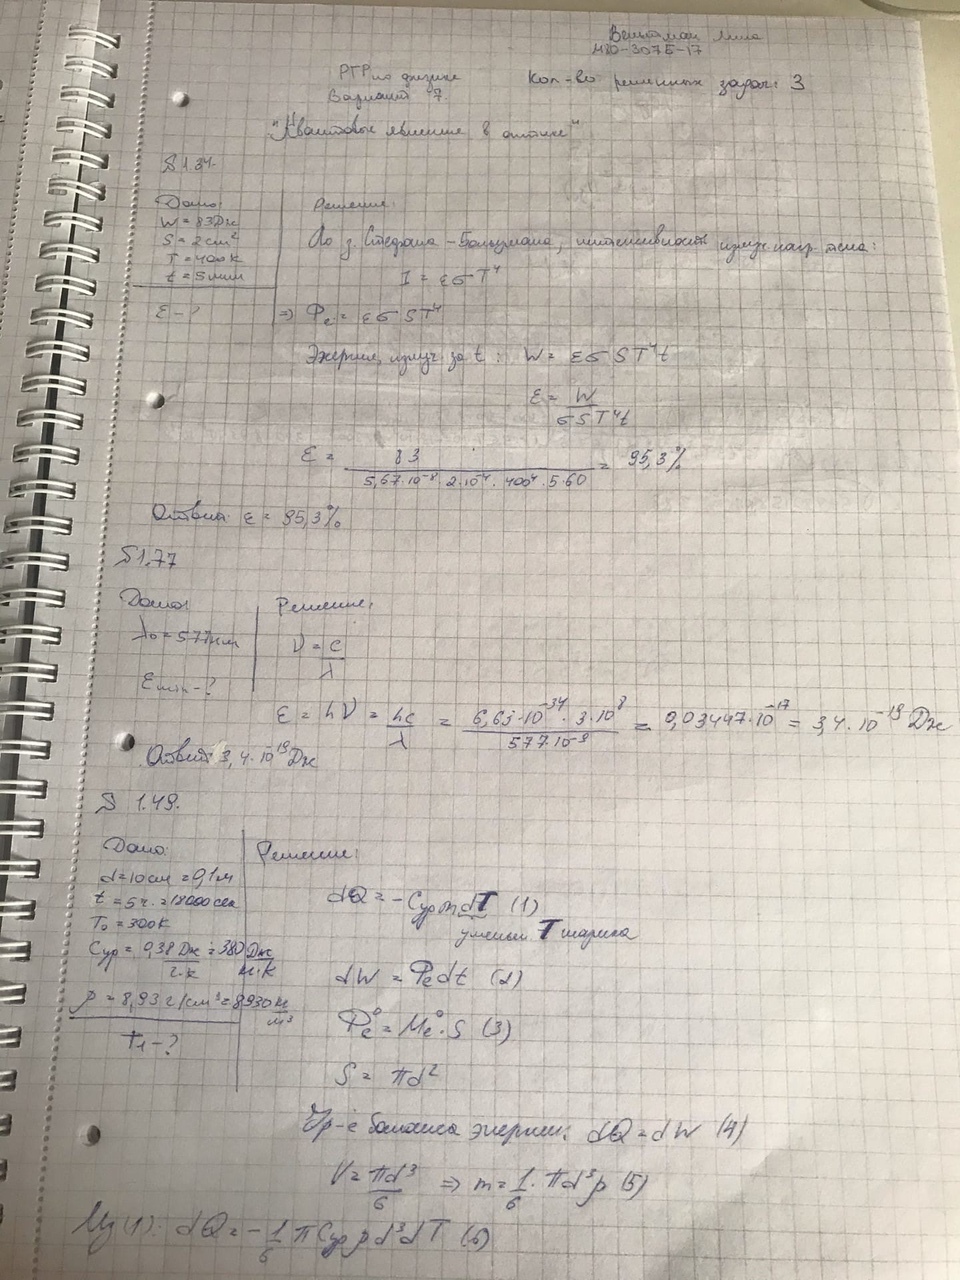 Вельтман Лина
М80-307Б-17
РГР по физике
Кол-во решенных задач: 3
Вариант 7.
"Квантовые явления в оптике"
§ 1.34.
Дано:
W = 83Дж
S = 2см²
T = 400К
t = 5мин
ε - ?
Решение:
По з. Стефана - Больцмана, интенсивность излуч. нагр. тела:
I = εσT⁴
=> Фe = εσST⁴
Энергия, излуч за t: W = εσST⁴t
ε = W / σST⁴t
ε = 83 / 5,67·10⁻⁸·2·10⁻⁴·400⁴·5·60 = 95,3%
Ответ: ε = 95,3%
§1.77
Дано:
λ₀ = 577нм
Emin - ?
Решение:
ν = c / λ
ε = hν = hc / λ = 6,63·10⁻³⁴·3·10⁸ / 577·10⁻⁹ = 0,03447·10⁻¹⁷ = 3,4·10⁻¹⁹ Дж
Ответ: 3,4·10⁻¹⁹ Дж
§ 1.49.
Дано:
d = 10см = 0,1м
t = 5ч. = 18000сек
T₀ = 300К
Cуд = 0,38 Дж / г·К = 380 Дж / кг·К
ρ = 8,93 г/см³ = 8930 кг / м³
T₁ - ?
Решение:
dQ = -Cуд m dT (1)
уменьш T шарика
dW = Фe dt (2)
Фe⁰ = Me⁰·S (3)
S = πd²
Ур-е баланса энергии: dQ = dW (4)
V = πd³ / 6 => m = 1/6·πd³ρ (5)
Из (1): dQ = -1/6 πCуд ρ d³dT (6)